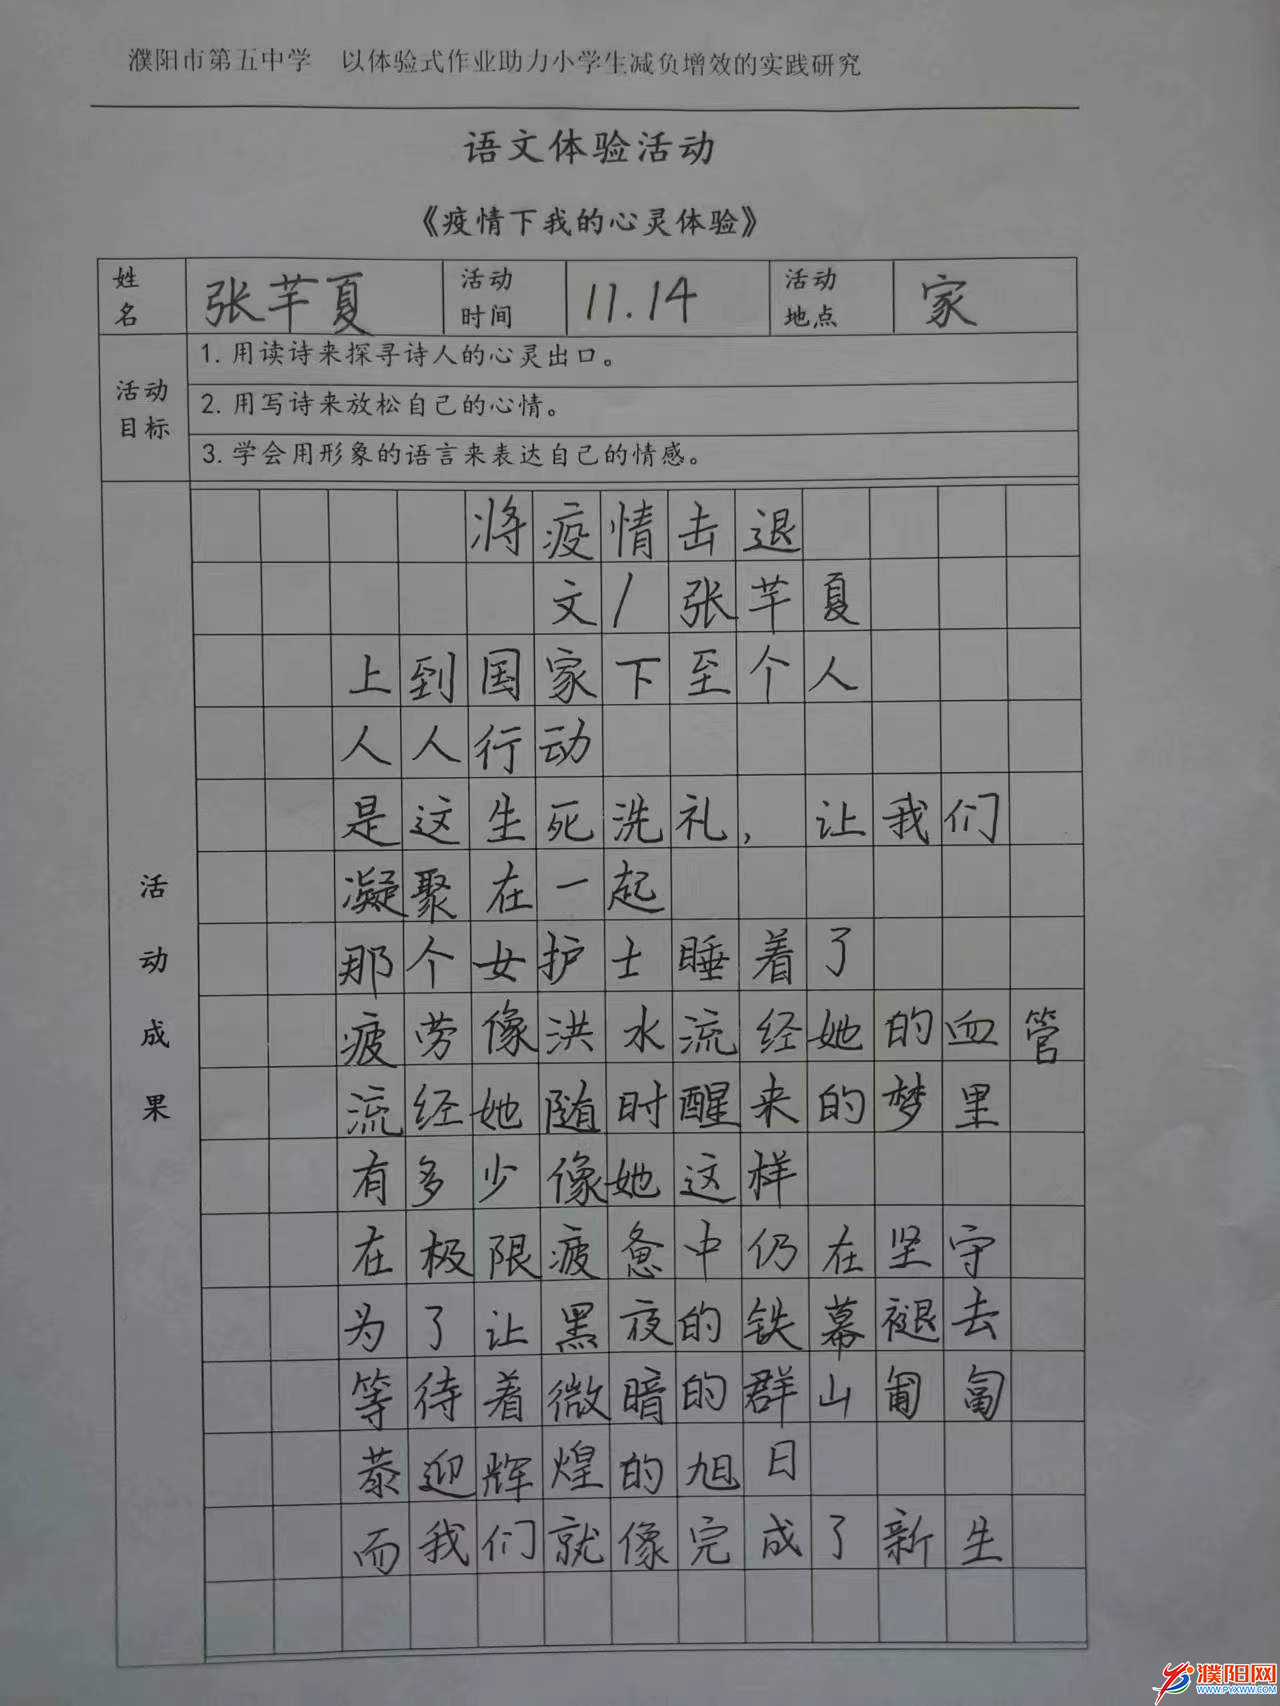 濮阳市第五中学 以体验式作业助力小学生减负增效的实践研究
语文体验活动
《疫情下我的心灵体验》
姓名 张芊夏 活动时间 11.14 活动地点 家
活动目标
1.用读诗来探寻诗人的心灵出口。
2.用写诗来放松自己的心情。
3.学会用形象的语言来表达自己的情感。
活动成果
将疫情击退
文/张芊夏
上到国家下至个人
人人行动
是这生死洗礼,让我们
凝聚在一起
那个女护士睡着了
疲劳像洪水流经她的血管
流经她随时醒来的梦里
有多少像她这样
在极限疲惫中仍在坚守
为了让黑夜的铁幕褪去
等待着微暗的群山匍匐
恭迎辉煌的旭日
而我们就像完成了新生
濮阳网
www.PYXWW.COM